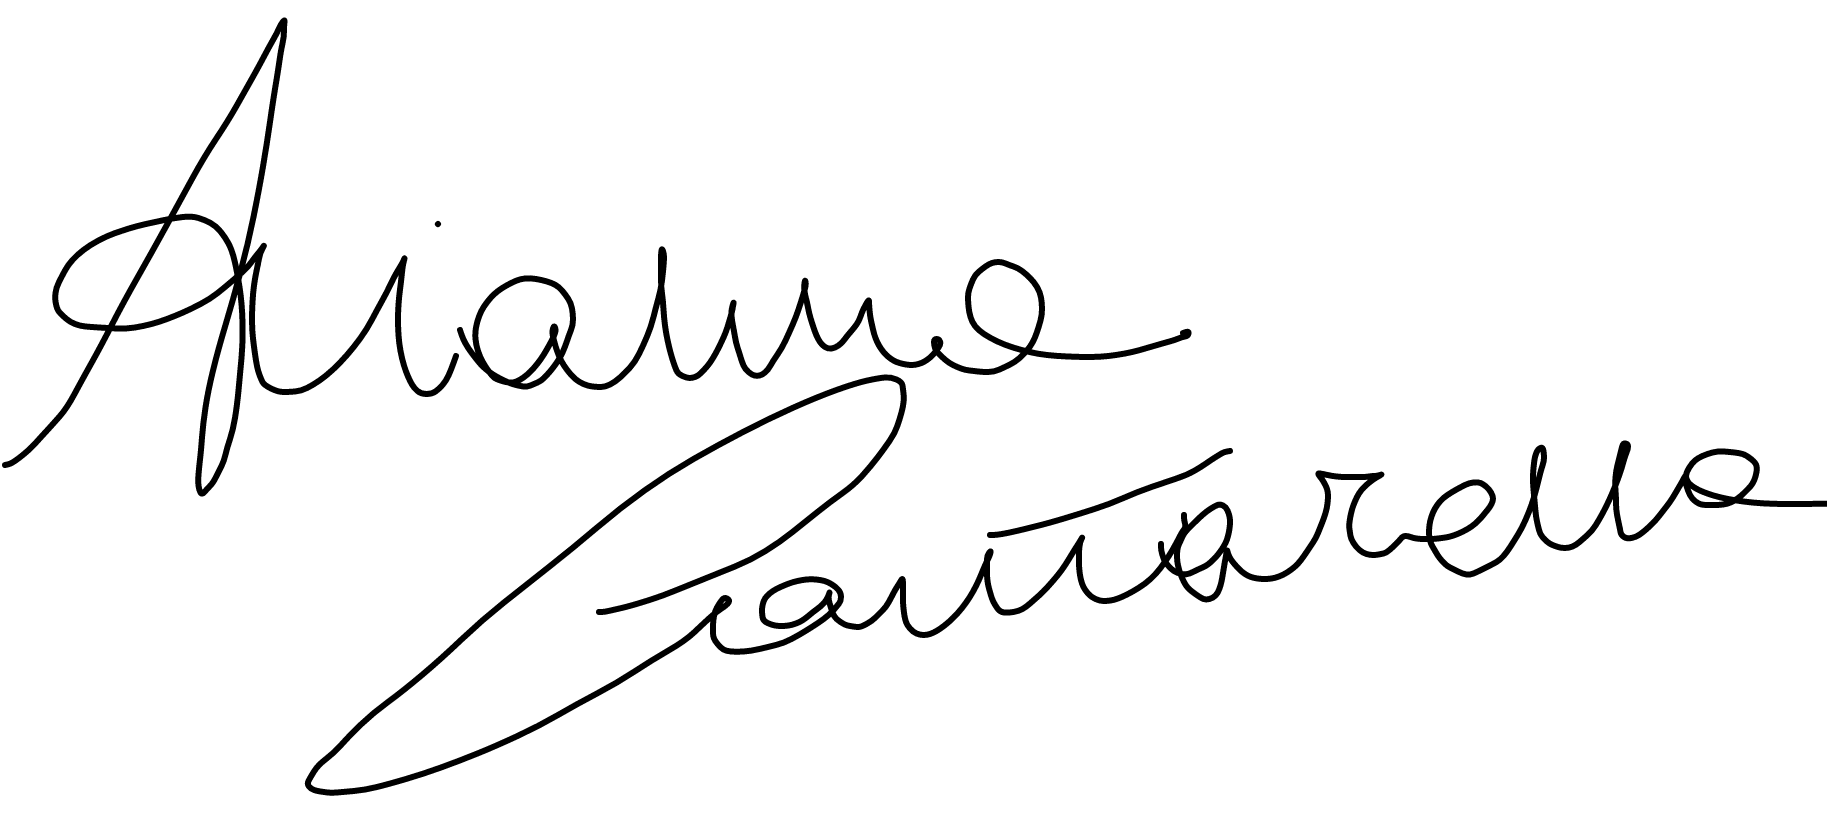 Arianna
Cantarella